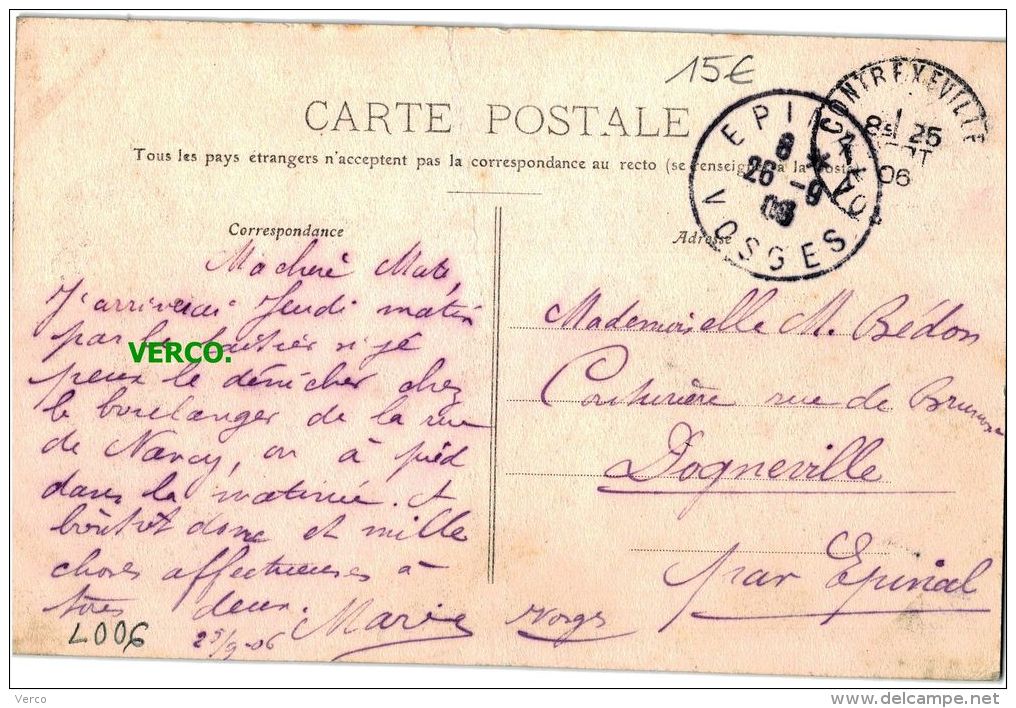 15€
CARTE POSTALE
Tous les pays étrangers n'acceptent pas la correspondance au recto (se renseigner à la
EPINAL
8
26 -9
06
VOSGES
CONTREXEVILLE
25
06
Correspondance
Adresse
Ma chère
J'arriverai Jeudi matin
par le laitier si je
peux le dénicher chez
le boulanger de la rue
de Nancy, ou à pied
dans la matinée. A
bientôt donc et mille
choses affectueuses à
tous deux.
Marie
25/9-06
Mademoiselle M. Bédon
Couturière rue de
Dogneville
par Epinal
Vosges
VERCO.
L006
Verco
www.delcampe.net